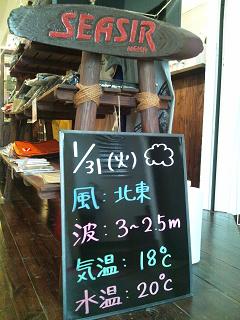 SEASIR
1/31(火)
風:北東
波:3~2.5m
気温:18℃
水温:20℃